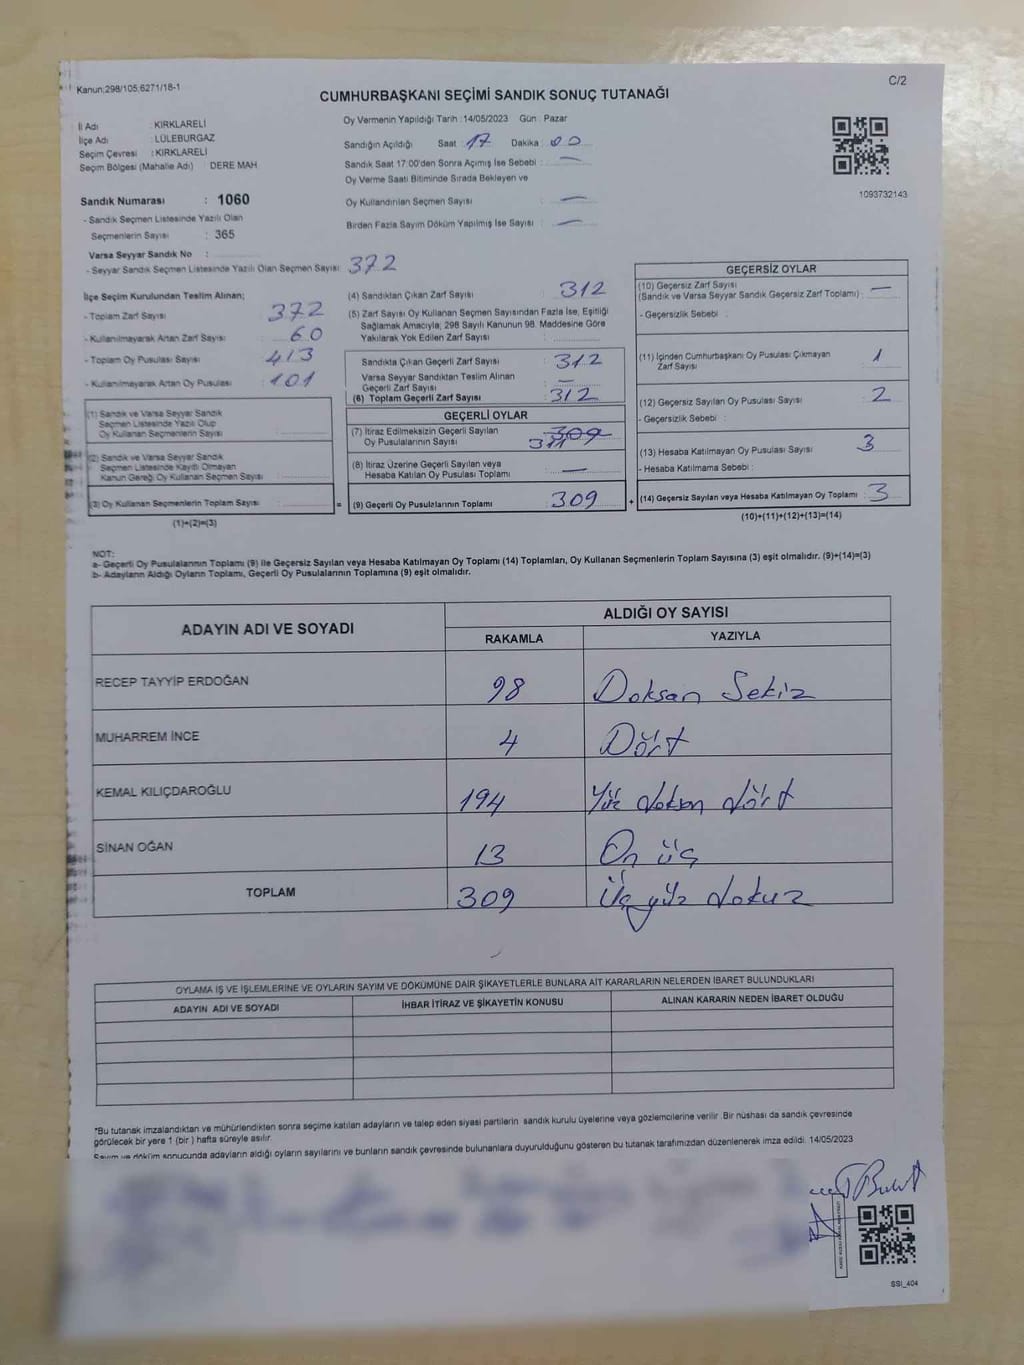 Kanun;298/105;6271/18-1
C/2
CUMHURBAŞKANI SEÇİMİ SANDIK SONUÇ TUTANAĞI
İl Adı : KIRKLARELİ
İlçe Adı : LÜLEBURGAZ
Seçim Çevresi : KIRKLARELİ
Seçim Bölgesi (Mahalle Adı) : DERE MAH.
Oy Vermenin Yapıldığı Tarih : 14/05/2023 Gün : Pazar
Sandığın Açıldığı Saat : 17 Dakika : 00
Sandık Saat 17.00'den Sonra Açımış İse Sebebi : —
Oy Verme Saati Bitiminde Sırada Bekleyen ve
Oy Kullandırılan Seçmen Sayısı : —
Birden Fazla Sayım Döküm Yapılmış İse Sayısı : —
1093732143
Sandık Numarası : 1060
- Sandık Seçmen Listesinde Yazılı Olan
Seçmenlerin Sayısı : 365
Varsa Seyyar Sandık No :
- Seyyar Sandık Seçmen Listesinde Yazılı Olan Seçmen Sayısı : 372
İlçe Seçim Kurulundan Teslim Alınan;
- Toplam Zarf Sayısı : 372
- Kullanılmayarak Artan Zarf Sayısı : 60
- Toplam Oy Pusulası Sayısı : 413
- Kullanılmayarak Artan Oy Pusulası : 101
(1) Sandık ve Varsa Seyyar Sandık
Seçmen Listesinde Yazılı Olup
Oy Kullanan Seçmenlerin Sayısı :
(2) Sandık ve Varsa Seyyar Sandık
Seçmen Listesinde Kaydı Olmayan
Kanun Gereği Oy Kullanan Seçmen Sayısı :
(3) Oy Kullanan Seçmenlerin Toplam Sayısı :
(1)+(2)=(3)
(4) Sandıktan Çıkan Zarf Sayısı : 312
(5) Zarf Sayısı Oy Kullanan Seçmen Sayısından Fazla İse, Eşitliği
Sağlamak Amacıyla; 298 Sayılı Kanunun 98. Maddesine Göre
Yakılarak Yok Edilen Zarf Sayısı :
Sandıkta Çıkan Geçerli Zarf Sayısı : 312
Varsa Seyyar Sandıktan Teslim Alınan
Geçerli Zarf Sayısı : —
(6) Toplam Geçerli Zarf Sayısı : 312
GEÇERLİ OYLAR
(7) İtiraz Edilmeksizin Geçerli Sayılan
Oy Pusulalarının Sayısı : 309 311
(8) İtiraz Üzerine Geçerli Sayılan veya
Hesaba Katılan Oy Pusulası Toplamı : —
= (9) Geçerli Oy Pusulalarının Toplamı : 309
GEÇERSİZ OYLAR
(10) Geçersiz Zarf Sayısı
(Sandık ve Varsa Seyyar Sandık Geçersiz Zarf Toplamı) : —
- Geçersizlik Sebebi :
(11) İçinden Cumhurbaşkanı Oy Pusulası Çıkmayan
Zarf Sayısı : 1
(12) Geçersiz Sayılan Oy Pusulası Sayısı : 2
- Geçersizlik Sebebi :
(13) Hesaba Katılmayan Oy Pusulası Sayısı : 3
- Hesaba Katılmama Sebebi :
+ (14) Geçersiz Sayılan veya Hesaba Katılmayan Oy Toplamı : 3
(10)+(11)+(12)+(13)=(14)
NOT:
a- Geçerli Oy Pusulalarının Toplamı (9) ile Geçersiz Sayılan veya Hesaba Katılmayan Oy Toplamı (14) Toplamları, Oy Kullanan Seçmenlerin Toplam Sayısına (3) eşit olmalıdır. (9)+(14)=(3)
b- Adayların Aldığı Oyların Toplamı, Geçerli Oy Pusulalarının Toplamına (9) eşit olmalıdır.
ADAYIN ADI VE SOYADI
ALDIĞI OY SAYISI
RAKAMLA YAZIYLA
RECEP TAYYİP ERDOĞAN 98 Doksan Sekiz
MUHARREM İNCE 4 Dört
KEMAL KILIÇDAROĞLU 194 Yüz doksan dört
SİNAN OĞAN 13 On üç
TOPLAM 309 Üç yüz dokuz
OYLAMA İŞ VE İŞLEMLERİNE VE OYLARIN SAYIM VE DÖKÜMÜNE DAİR ŞİKAYETLERLE BUNLARA AİT KARARLARIN NELERDEN İBARET BULUNDUKLARI
ADAYIN ADI VE SOYADI İHBAR İTİRAZ VE ŞİKAYETİN KONUSU ALINAN KARARIN NEDEN İBARET OLDUĞU
*Bu tutanak imzalandıktan ve mühürlendikten sonra seçime katılan adayların ve talep eden siyasi partilerin sandık kurulu üyelerine veya gözlemcilerine verilir. Bir nüshası da sandık çevresinde
görülecek bir yere 1 (bir ) hafta süreyle asılır.
Sayım ve döküm sonucunda adayların aldığı oyların sayılarını ve bunların sandık çevresinde bulunanlara duyurulduğunu gösteren bu tutanak tarafımızdan düzenlenerek imza edildi. 14/05/2023
SSI_404